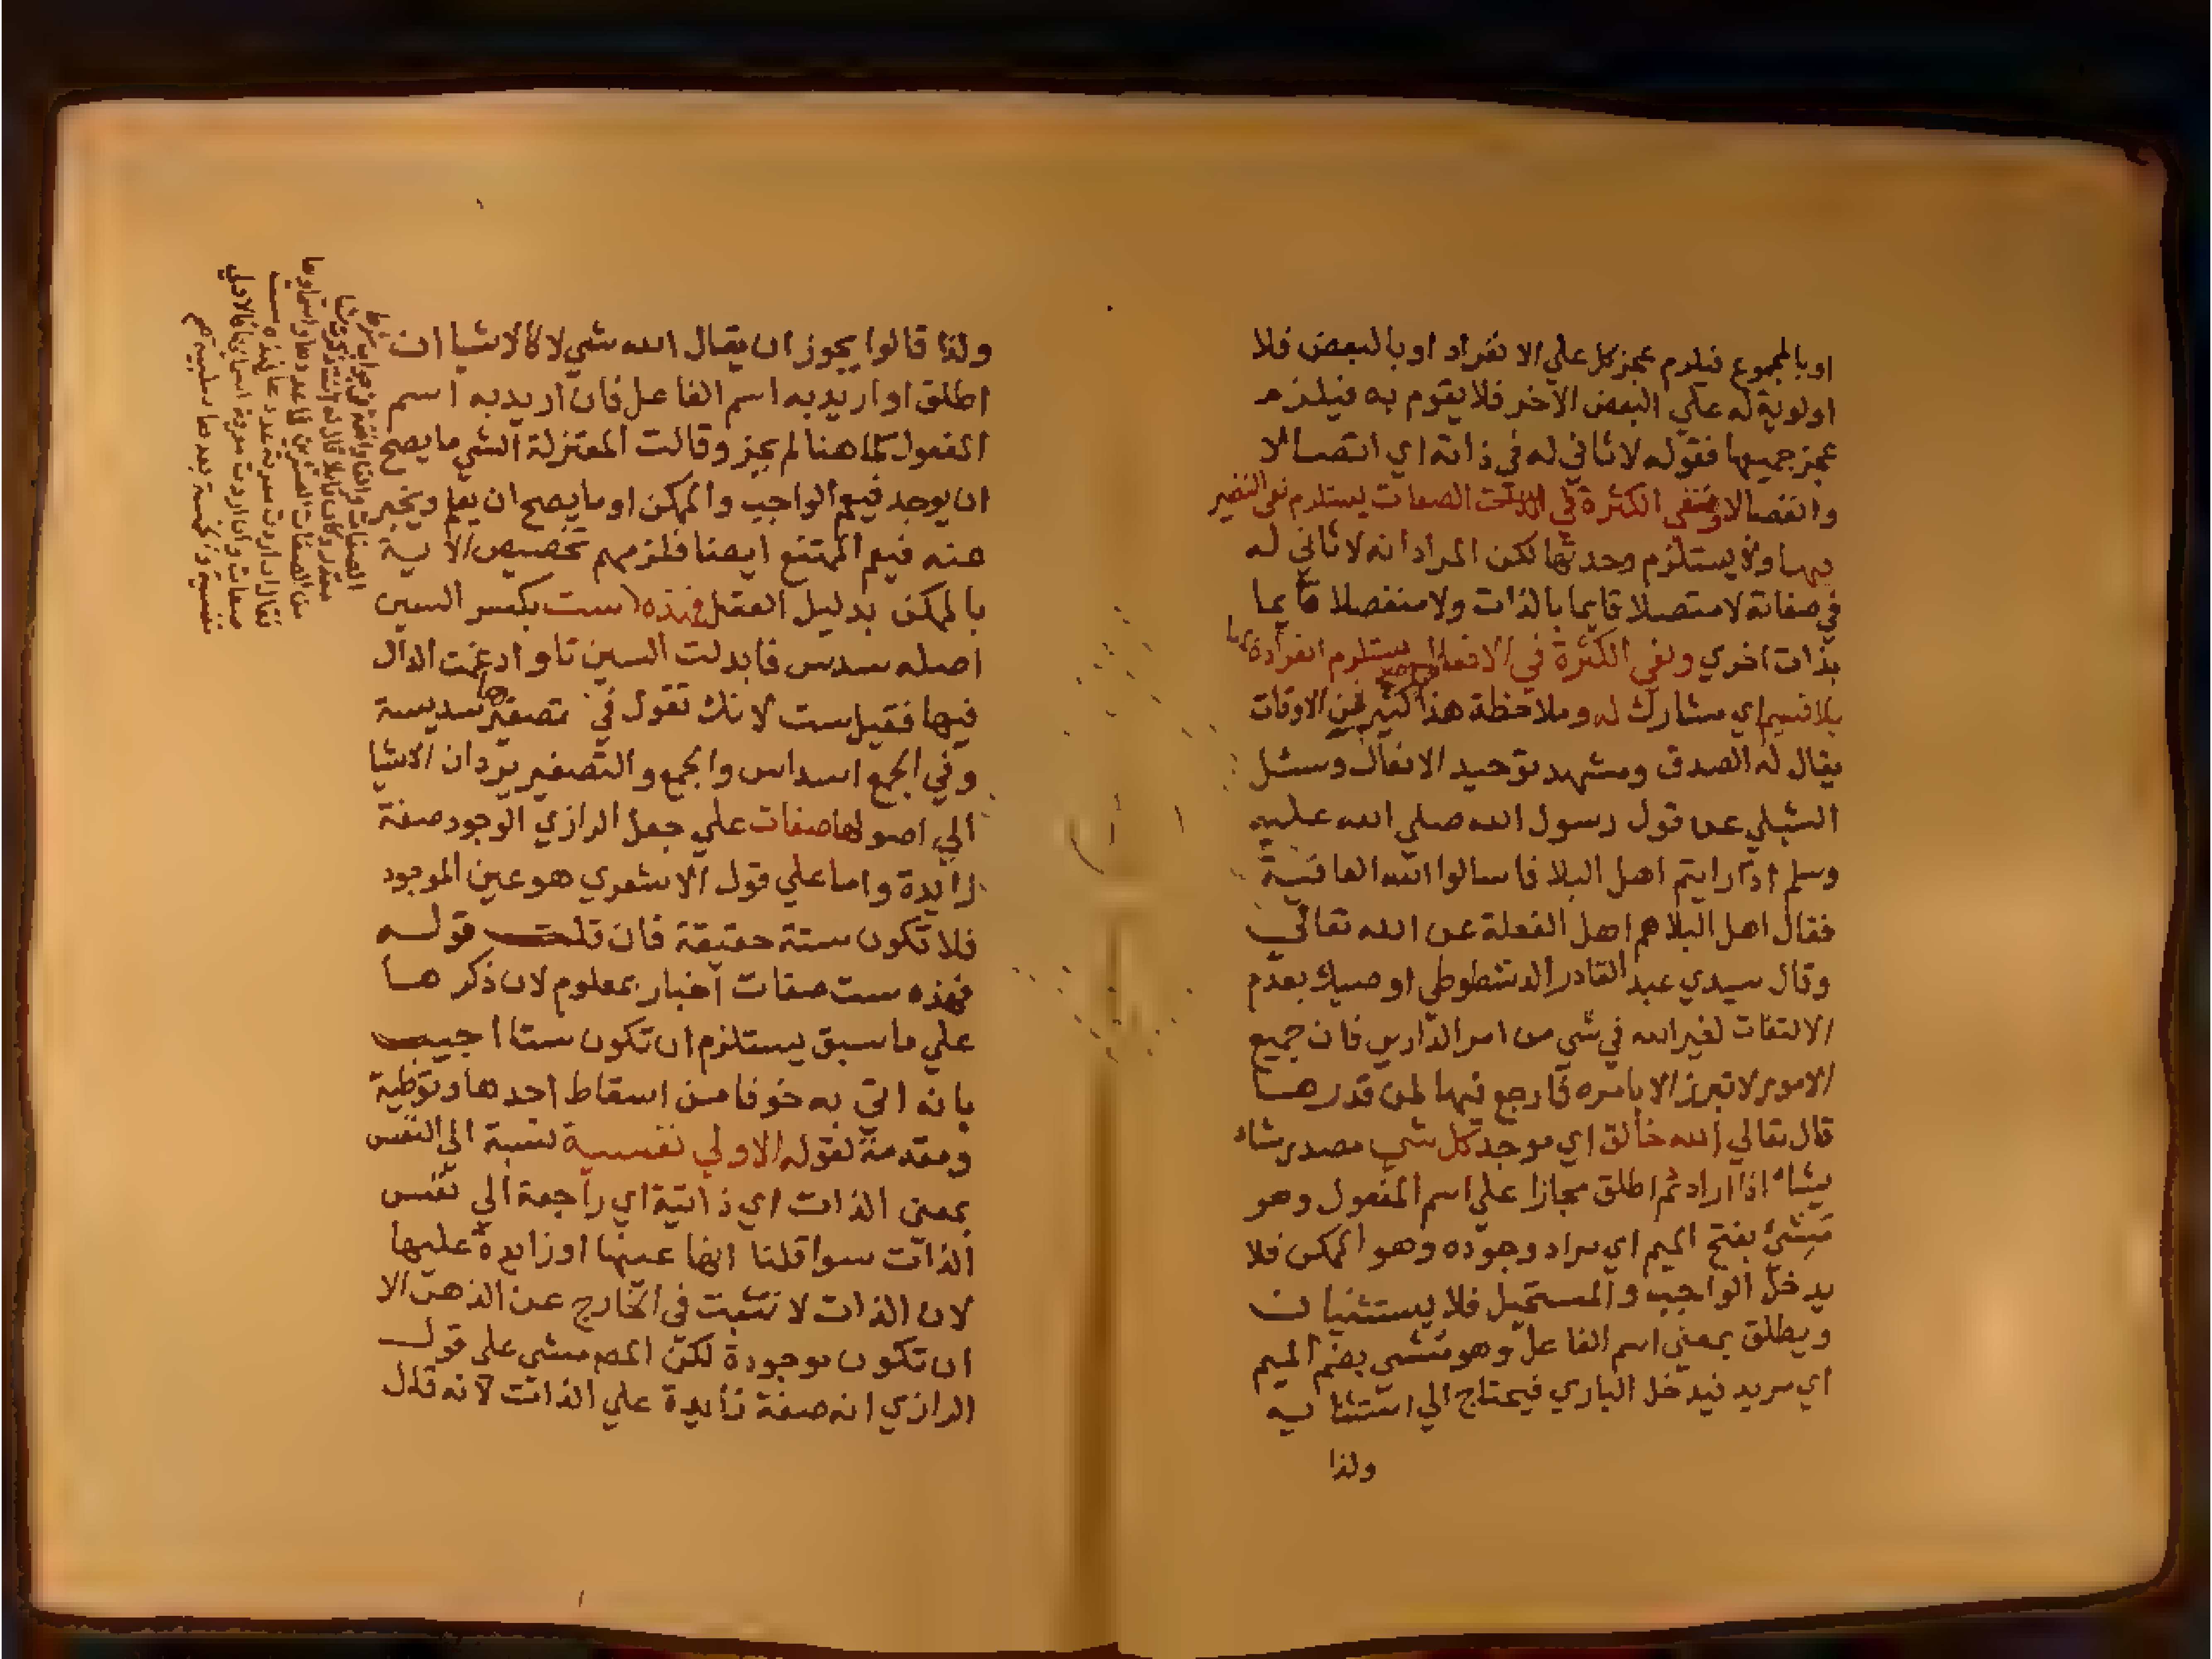 او بالمجموع فيلزم عجز كل علي الانفراد او بالبعض فلا
اولوية له علي البعض الاخر فلا يقوم به فيلزم
عجز جميعها فقوله لا ثاني له في ذاته اي اتصالا
وانفصالا ونفي الكثرة في الصفات يستلزم نفي النضير
بها ولا يستلزم وحدتها لكن المراد انه لا ثاني له
في صفاته لا متصلا قايما بالذات ولا منفصلا قايما
بذات اخري ونفي الكثرة في الافعال يستلزم انفراده بها
بلا قسيم اي مشارك له وملاحظة هذا الاوقات
يقال له الصدق ومشهد توحيد الافعال وسئل
الشبلي عن قول رسول الله صلي الله عليه
وسلم اذا رايتم اهل البلا فاسالوا الله العافية
فقال اهل البلا هم اهل الغفلة عن الله تعالي
وقال سيدي عبد القادر الدشطوطي اوصيك بعدم
الالتفات لغير الله في شي من امر الدارين فان جميع
الامور لا تبرز الا بامره فارجع فيها لمن قدرها
قال تعالي الله خالق اي موجد كل شي مصدر شاء
يشاء اذا اراد ثم اطلق مجازا علي اسم المفعول وهو
مشئ بفتح الميم اي مراد وجوده وهو الممكن فلا
يدخل الواجب والمستحيل فلا يستثنيان
ويطلق بمعني اسم الفاعل وهو منشي بضم الميم
اي مريد فيدخل الباري فيحتاج الي استثنايه
ولذا
ولذا قالوا يجوز ان يقال الله شي لا كالاشيا ان
اطلق او اريد به اسم الفاعل فان اريد به اسم
المفعول كما هنا لم يجز وقالت المعتزلة الشي ما يصح
ان يوجد فيعم الواجب والممكن او ما يصح ان يعلم ويخبر
عنه فيعم الممتنع ايضا فلزمهم تخصيص الاية
بالممكن بدليل العقل فهذه ست بكسر السين
اصله سدس فابدلت السين تا وادغمت الدال
فيها فقيل ست لانك تقول في تصغيرها سديسة
وفي الجمع اسداس والجمع والتصغير يردان الاشيا
الي اصولها صفات علي جعل الرازي الوجود صفة
زايدة واما علي قول الاشعري هو عين الموجود
فلا تكون ستة حقيقة فان قلت قوله
فهذه ست صفات اخبار بمعلوم لان ذكرها
علي ما سبق يستلزم ان تكون ستا اجيب
بانه اتي به خوفا من اسقاط احدها وتوطية
ومقدمة لقوله الاولي نفسية نسبة الي النفس
بمعني الذات اي ذاتية اي راجعة الي نفس
الذات سوا قلنا انها عينها او زايدة عليها
لان الذات لا تثبت في الخارج عن الذهن الا
ان تكون موجودة لكن المص مشي علي قول
الرازي انه صفة زايدة علي الذات لانه قال